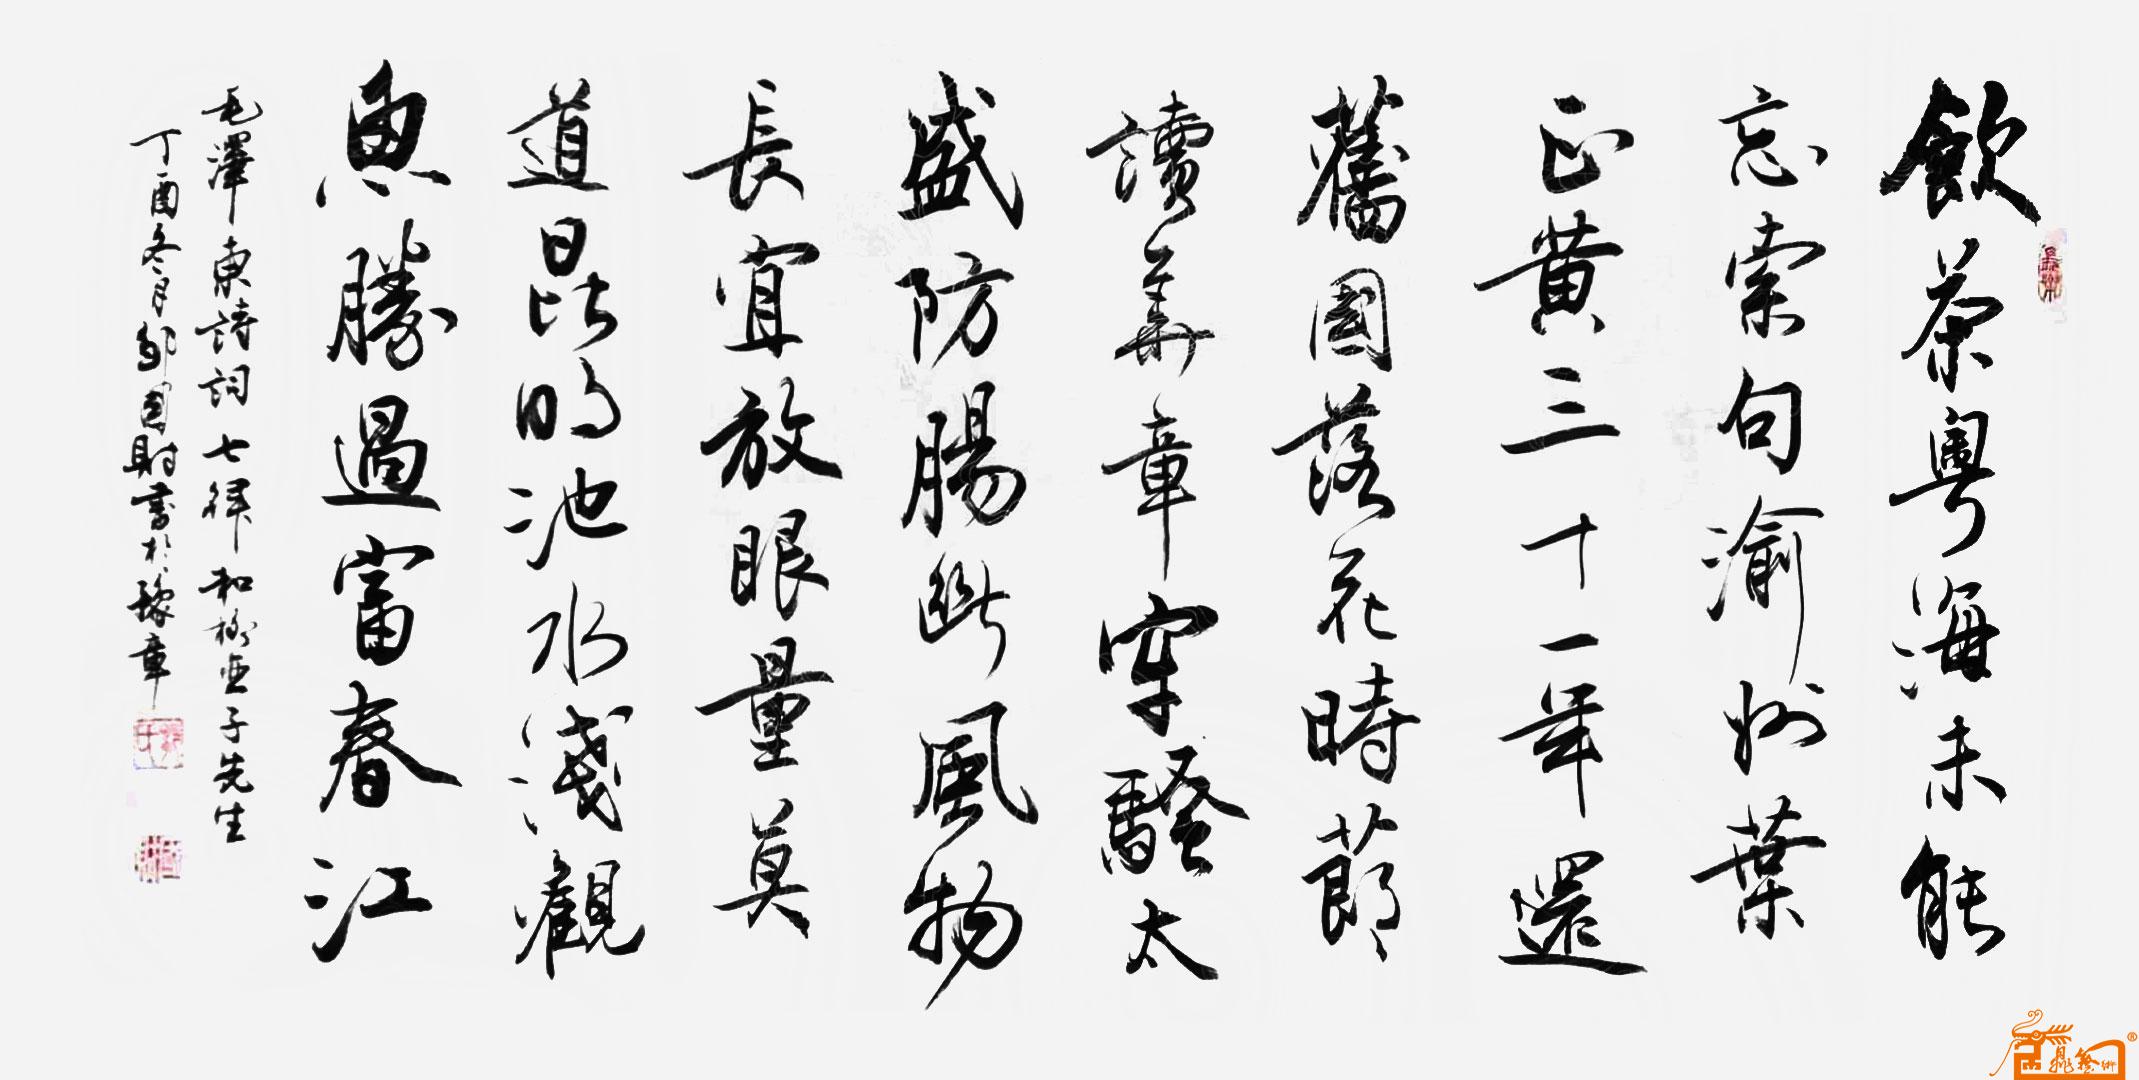 飲茶粵海未能
忘索句渝州葉
正黃三十一年還
舊國落花時節
讀華章牢騷太
盛防腸斷風物
長宜放眼量莫
道昆明池水淺觀
魚勝過富春江
毛澤東詩詞七律和柳亞子先生
丁酉冬月邹國財書於豫章